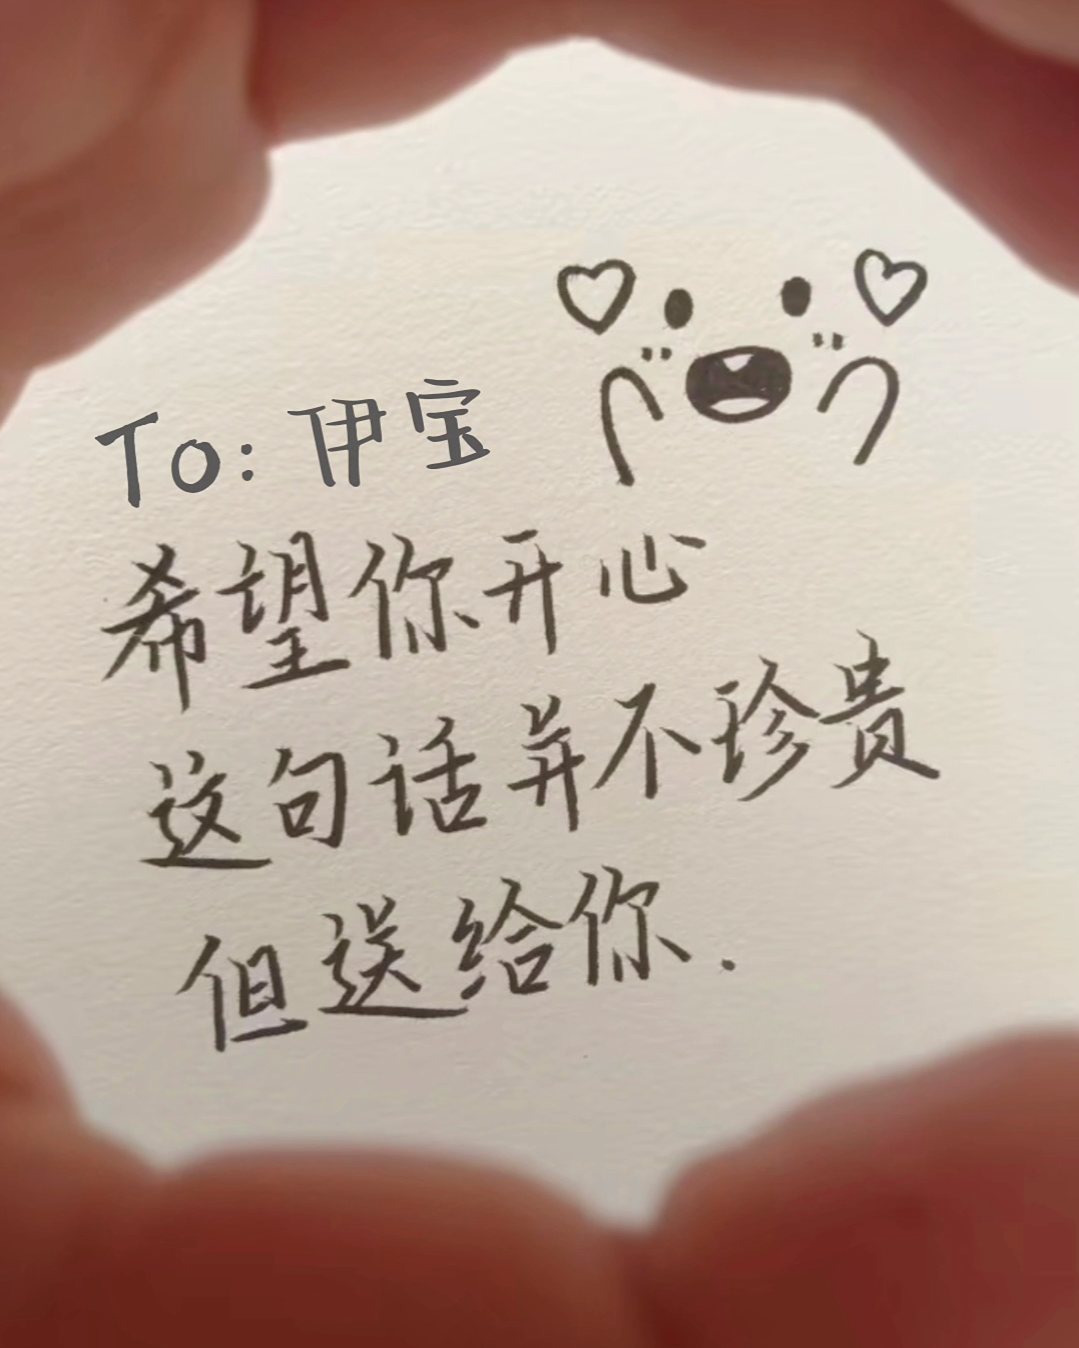 To: 伊宝
希望你开心
这句话并不珍贵
但送给你.